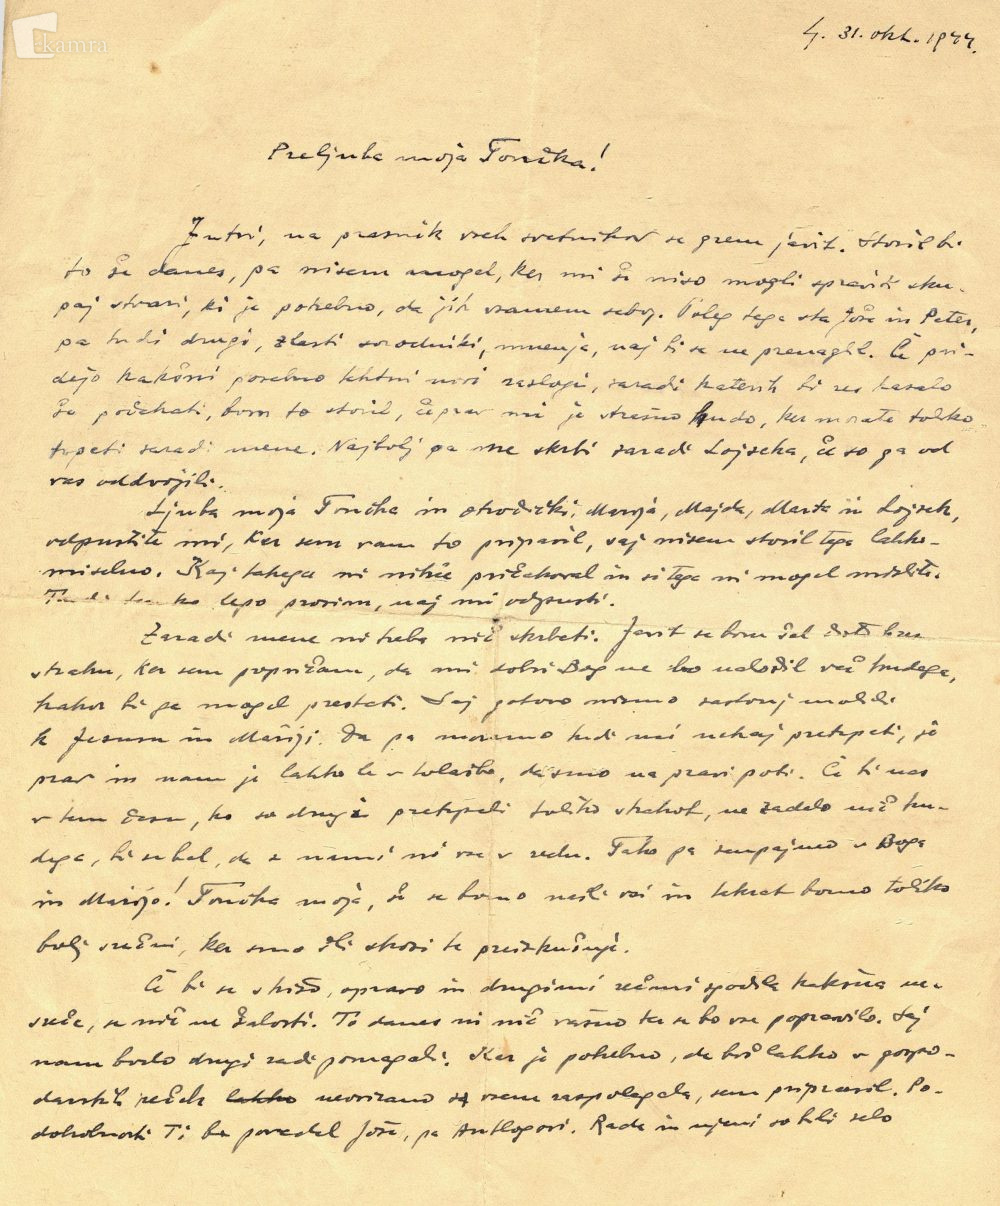 kamra
Lj. 31. okt. 1944.
Preljuba moja Tončka!
Jutri, na praznik vseh svetnikov se grem javit. Storil bi
to še danes, pa nisem mogel, ker mi še niso mogli spraviti sku-
paj stvari, ki je potrebno, da jih vzamem seboj. Poleg tega sta Jože in Peter,
pa tudi drugi, zlasti sorodniki, mnenja, naj bi se ne prenaglil. Če pri-
dejo kakšni posebno tehtni novi razlogi, zaradi katerih bi res kazalo
še počakati, bom to storil, čeprav mi je strašno hudo, ker morate toliko
trpeti zaradi mene. Najbolj pa me skrbi zaradi Lojzeka, če so ga od
vas oddvojili.
Ljuba moja Tončka in otročički, Marija, Majda, Marta in Lojzek,
odpustite mi, ker sem vam to pripravil, saj nisem storil tega lahko-
miselno. Kaj takega ni nihče pričakoval in si tega ni mogel misliti.
Tudi lepo prosim, naj mi odpusti.
Zaradi mene ni treba nič skrbeti. Javit se bom šel čisto brez
strahu, ker sem prepričan, da mi dobri Bog ne bo naložil več hudega,
kakor bi ga mogel prestati. Saj gotovo nismo zastonj molili
k Jezusu in Mariji. Da pa moramo tudi mi nekaj pretrpeti, je
prav in nam je lahko le v tolažbo, da smo na pravi poti. Če bi nas
v tem času, ko so drugi pretrpeli toliko strahot, ne zadelo nič hu-
dega, bi se bal, da z nami ni vse v redu. Tako pa zaupajmo v Boga
in Marijo! Tončka moja, še se bomo našli vsi in takrat bomo toliko
bolj srečni, ker smo šli skozi te preizkušnje.
Če bi se s hišo, opravo in drugimi rečmi zgodila kakšna ne-
sreča, se nič ne žalosti. To danes ni nič važno ter se bo vse popravilo. Saj
nam bodo drugi radi pomagali. Kar je potrebno, da boš lahko v gospo-
darskih rečeh lahko neovirano z vsem razpolagala, sem pripravil. Po-
drobnosti Ti bo povedal Jože, pa Antlogovi. Rada in njeni so bili zelo